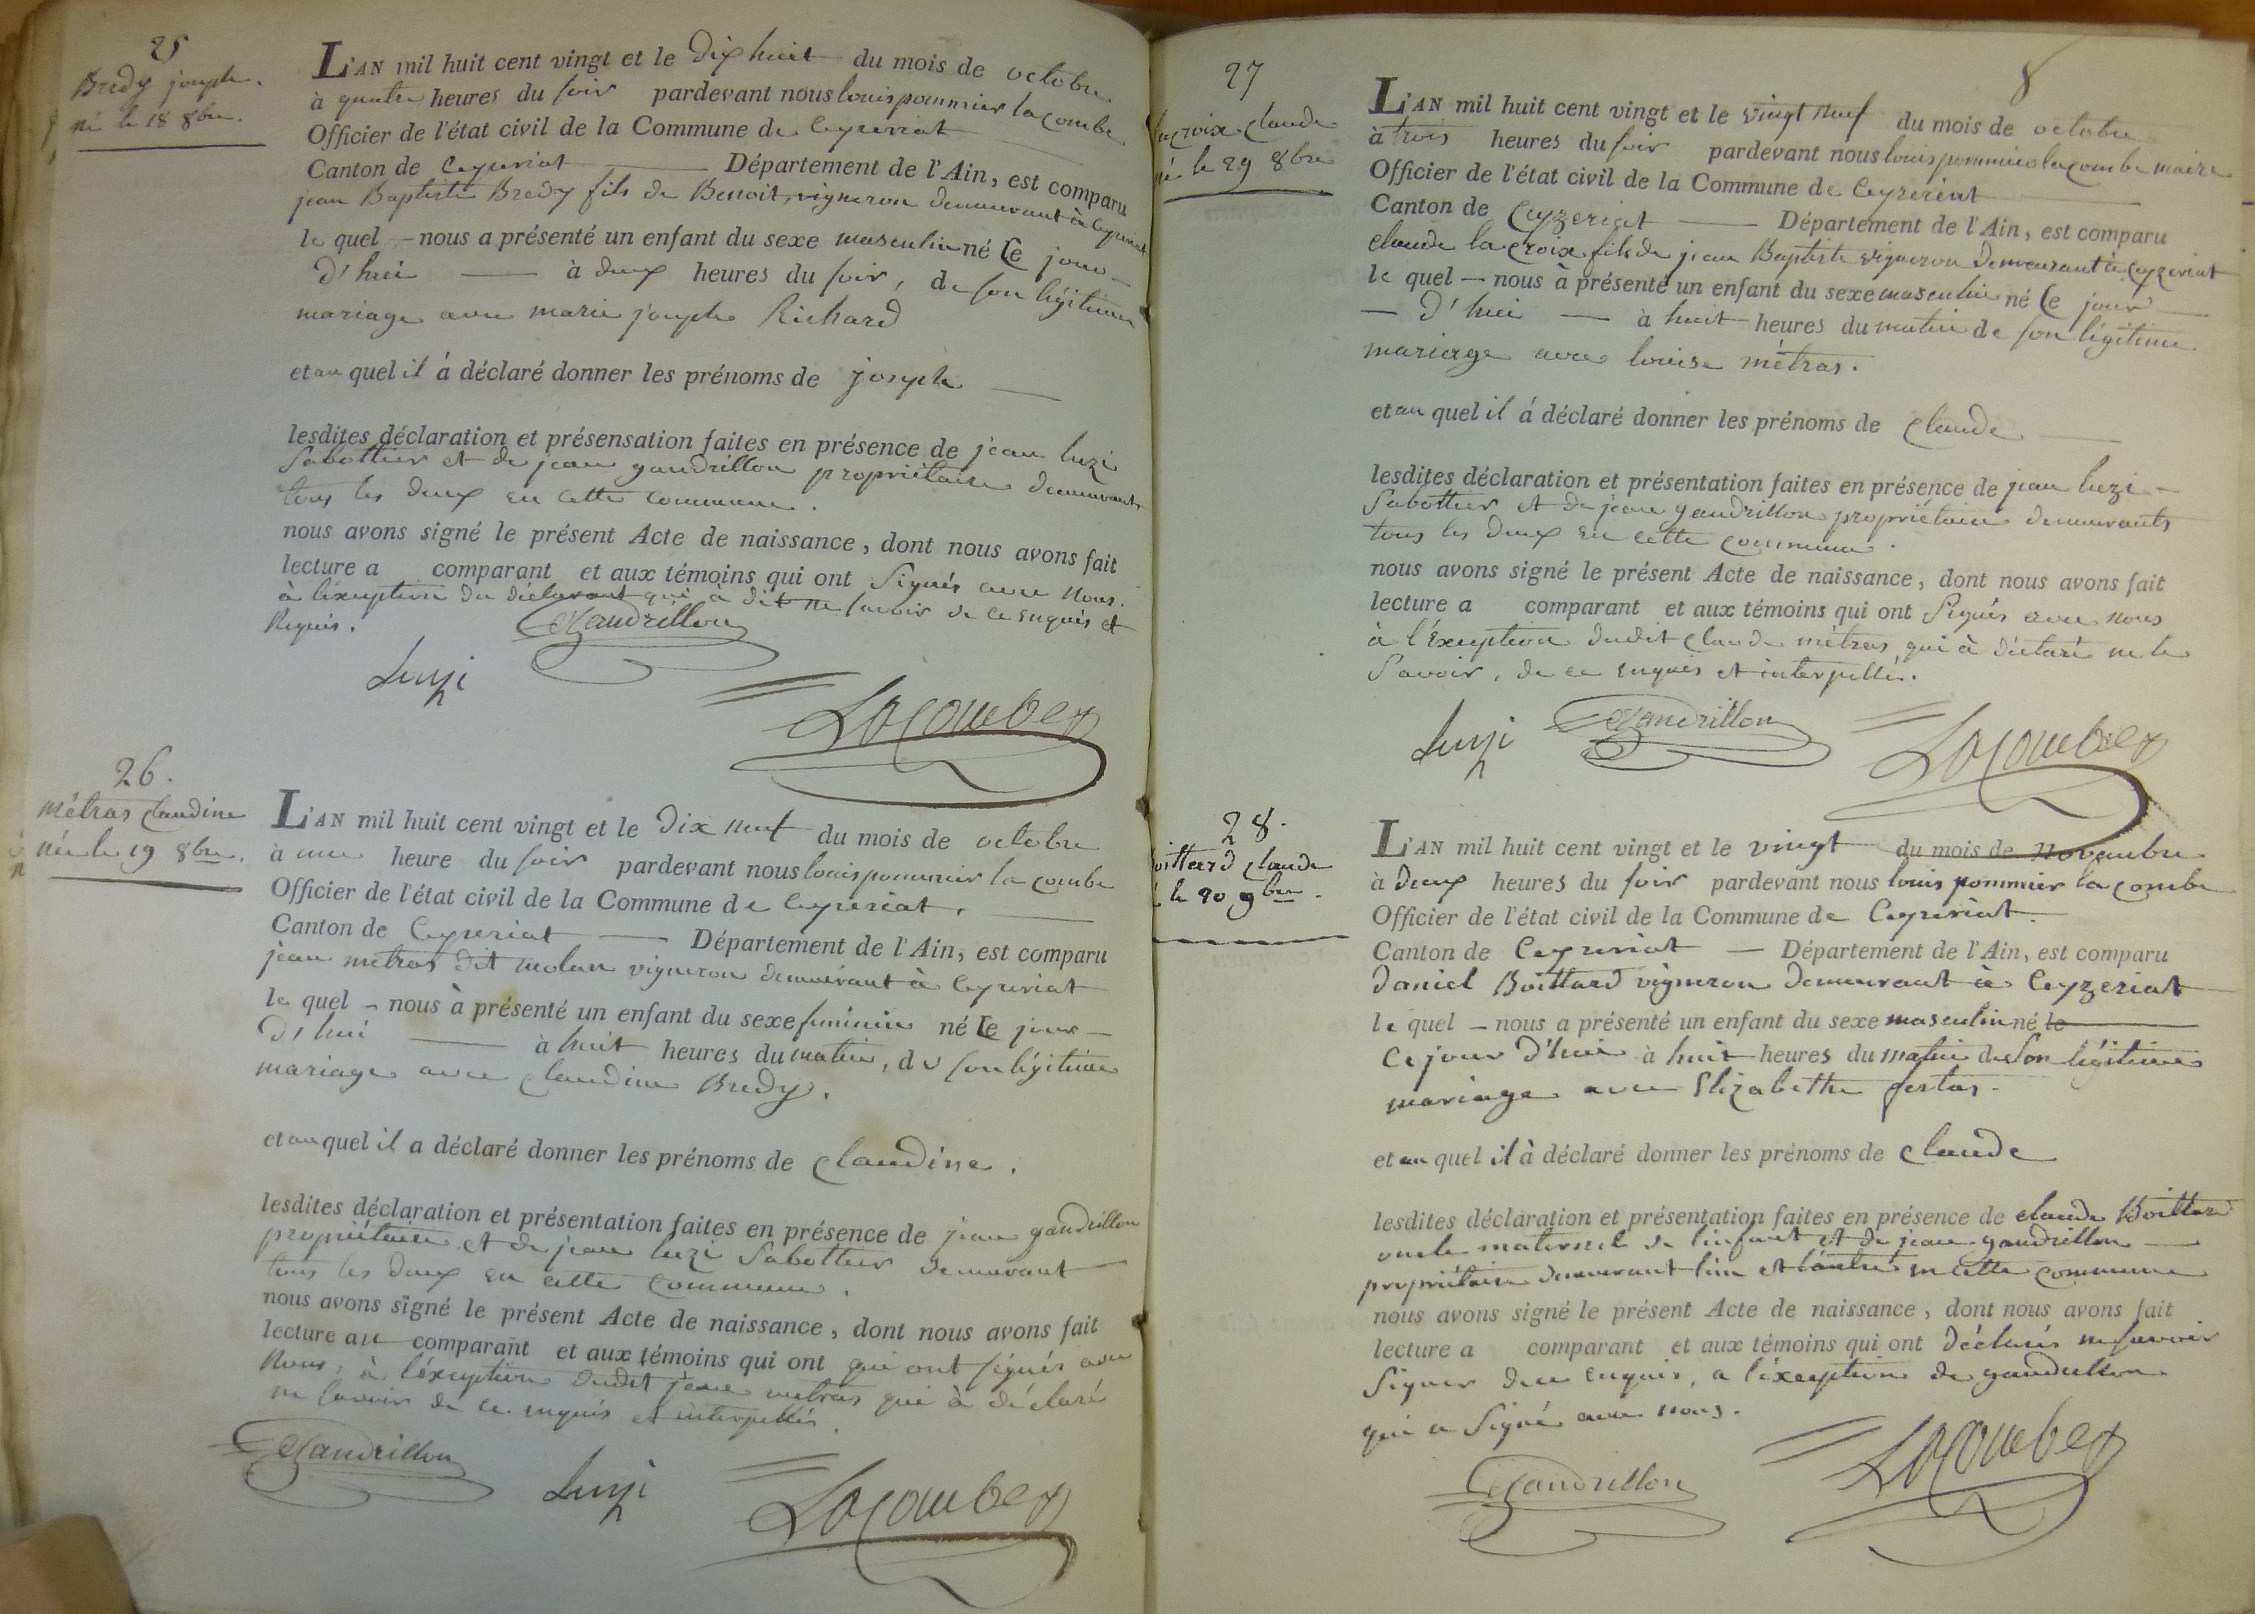 25
Bredy joseph.
né le 18 8bre.
L'AN mil huit cent vingt et le dix huit du mois de octobre
à quatre heures du soir pardevant nous louis pommier la combe
Officier de l'état civil de la Commune de Ceyzeriat
Canton de Ceyzeriat Département de l'Ain, est comparu
jean Baptiste Bredy fils de Benoit, vigneron demeurant à Ceyzeriat
le quel – nous a présenté un enfant du sexe masculin né Ce jour
d'hui à deux heures du soir, de son légitime
mariage avec marie joseph Richard
et au quel il á déclaré donner les prénoms de joseph
lesdites déclaration et présensation faites en présence de jean luzi
Sabottier et de jean gaudrillon propriétaire demeurants
tous les deux en cette commune.
nous avons signé le présent Acte de naissance, dont nous avons fait
lecture a comparant et aux témoins qui ont Signés avec nous.
à l'éxeption du déclarant qui à dit ne savoir de ce enquis et
Requis.
Gaudrillon
Luzi
Lacombe
26.
métras Claudine
née le 19 8bre.
L'AN mil huit cent vingt et le dix neuf du mois de octobre
à une heure du soir pardevant nous louis pommier la combe
Officier de l'état civil de la Commune de Ceyzeriat.
Canton de Ceyzeriat Département de l'Ain, est comparu
jean métras dit molan vigneron demeurant à Ceyzeriat
le quel – nous à présenté un enfant du sexe feminin né Ce jour –
d'hui à huit heures du matin, de son légitime
mariage avec Claudine Bredy.
et au quel il a déclaré donner les prénoms de Claudine.
lesdites déclaration et présentation faites en présence de jean gaudrillon
propriétaire et de jean luzi Sabottier demeurant
tous les deux en cette commune.
nous avons signé le présent Acte de naissance, dont nous avons fait
lecture au comparant et aux témoins qui ont qui ont signés avec
Nous, à l'éxeption dudit jean métras qui à déclaré
ne savoir de ce enquis et interpellés.
Gaudrillon
Luzi
Lacombe
27
lacroix Claude
né le 29 8bre
8
L'AN mil huit cent vingt et le vingt neuf du mois de octobre
à trois heures du soir pardevant nous louis pommier lacombe maire
Officier de l'état civil de la Commune de Ceyzeriat
Canton de Ceyzeriat Département de l'Ain, est comparu
Claude la Croix fils de jean Baptiste vigneron demeurant à Ceyzeriat
le quel – nous à présenté un enfant du sexe masculin né Ce jour
– d'hui – à huit heures du matin de son légitime
mariage avec louise métras.
et au quel il á déclaré donner les prénoms de Claude
lesdites déclaration et présentation faites en présence de jean luzi –
Sabottier et de jean gaudrillon propriétaire demeurants
tous les deux en cette commune.
nous avons signé le présent Acte de naissance, dont nous avons fait
lecture a comparant et aux témoins qui ont Signés avec nous
à l'éxeption dudit Claude métras qui à déclaré ne le
Savoir, de ce enquis et interpellé.
Luzi
Gaudrillon
Lacombe
28.
oittard Claude
le 20 9bre.
L'AN mil huit cent vingt et le vingt du mois de novembre
à deux heures du soir pardevant nous louis pommier la combe
Officier de l'état civil de la Commune de Ceyzeriat.
Canton de Ceyzeriat – Département de l'Ain, est comparu
daniel Boittard vigneron demeurant à Ceyzeriat
le quel – nous a présenté un enfant du sexe masculin né le
Ce jour d'hui à huit heures du matin de son légitime
mariage avec Elizabethe festas.
et au quel il à déclaré donner les prénoms de Claude
lesdites déclaration et présentation faites en présence de claude Boittard
oncle maternel de l'enfant et de jean gaudrillon
propriétaire demeurant l'un et l'autre en cette commune
nous avons signé le présent Acte de naissance, dont nous avons fait
lecture a comparant et aux témoins qui ont déclarés ne savoir
Signer de ce enquis, a l'éxeption de gaudrillon
qui a Signé avec nous.
Gaudrillon
Lacombe